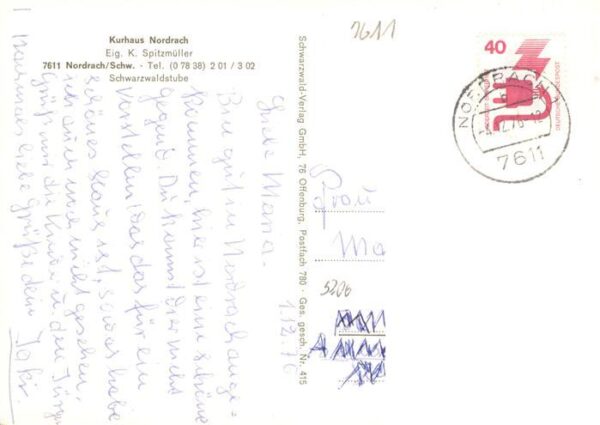 7611
Kurhaus Nordrach
Eig. K. Spitzmüller
7611 Nordrach/Schw. - Tel. (0 78 38) 2 01 / 3 02
Schwarzwaldstube
1.12.76
Liebe Maria.
Bin gut in Nordrach ange=
kommen, hier ist eine schöne
Gegend. Du kannst dir nicht
vorstellen das das für ein
schönes Haus ist, so was habe
ich auch noch nicht gesehen.
Grüß mir die Kinder u. den Jürgen
Nochmals liebe Grüße dein
Schwarzwald-Verlag GmbH, 76 Offenburg, Postfach 780 · Ges. gesch. Nr. 415
40
DEUTSCHE BUNDESPOST
NORDRACH
7611
Frau
Ma
5206